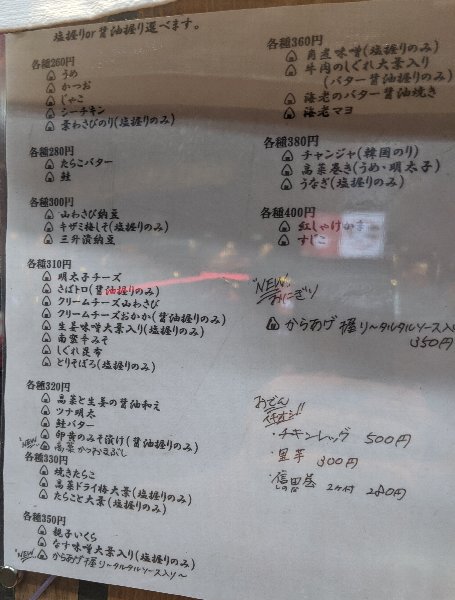 塩握りor醤油握り選べます。
各種260円
うめ
かつお
じゃこ
シーチキン
葉わさびのり(塩握りのみ)
各種280円
たらこバター
鮭
各種300円
山わさび納豆
キザミ梅しそ(塩握りのみ)
三升漬納豆
各種310円
明太子チーズ
さばトロ(醤油握りのみ)
クリームチーズ山わさび
クリームチーズおかか(醤油握りのみ)
生姜味噌大葉入り(塩握りのみ)
南蛮辛みそ
しぐれ昆布
とりそぼろ(塩握りのみ)
各種320円
高菜と生姜の醤油和え
ツナ明太
鮭バター
卵黄のみそ漬け(醤油握りのみ)
NEW 高菜かつおまぶし
各種330円
焼きたらこ
高菜ドライ梅大葉(塩握りのみ)
たらこと大葉(塩握りのみ)
各種350円
親子いくら
なす味噌大葉入り(塩握りのみ)
NEW からあげ握り〜タルタルソース入り〜
各種360円
角煮味噌(塩握りのみ)
牛肉のしぐれ大葉入り
(バター醤油握りのみ)
海老のバター醤油焼き
海老マヨ
各種380円
チャンジャ(韓国のり)
高菜巻き(うめ・明太子)
うなぎ(塩握りのみ)
各種400円
紅しゃけかま
すじこ
"NEW"
おにぎり
からあげ握り〜タルタルソース入り
350円
おでん
イチオシ!!
・チキンレッグ 500円
・里芋 300円
・信田巻 2ケ付 280円
しのだ